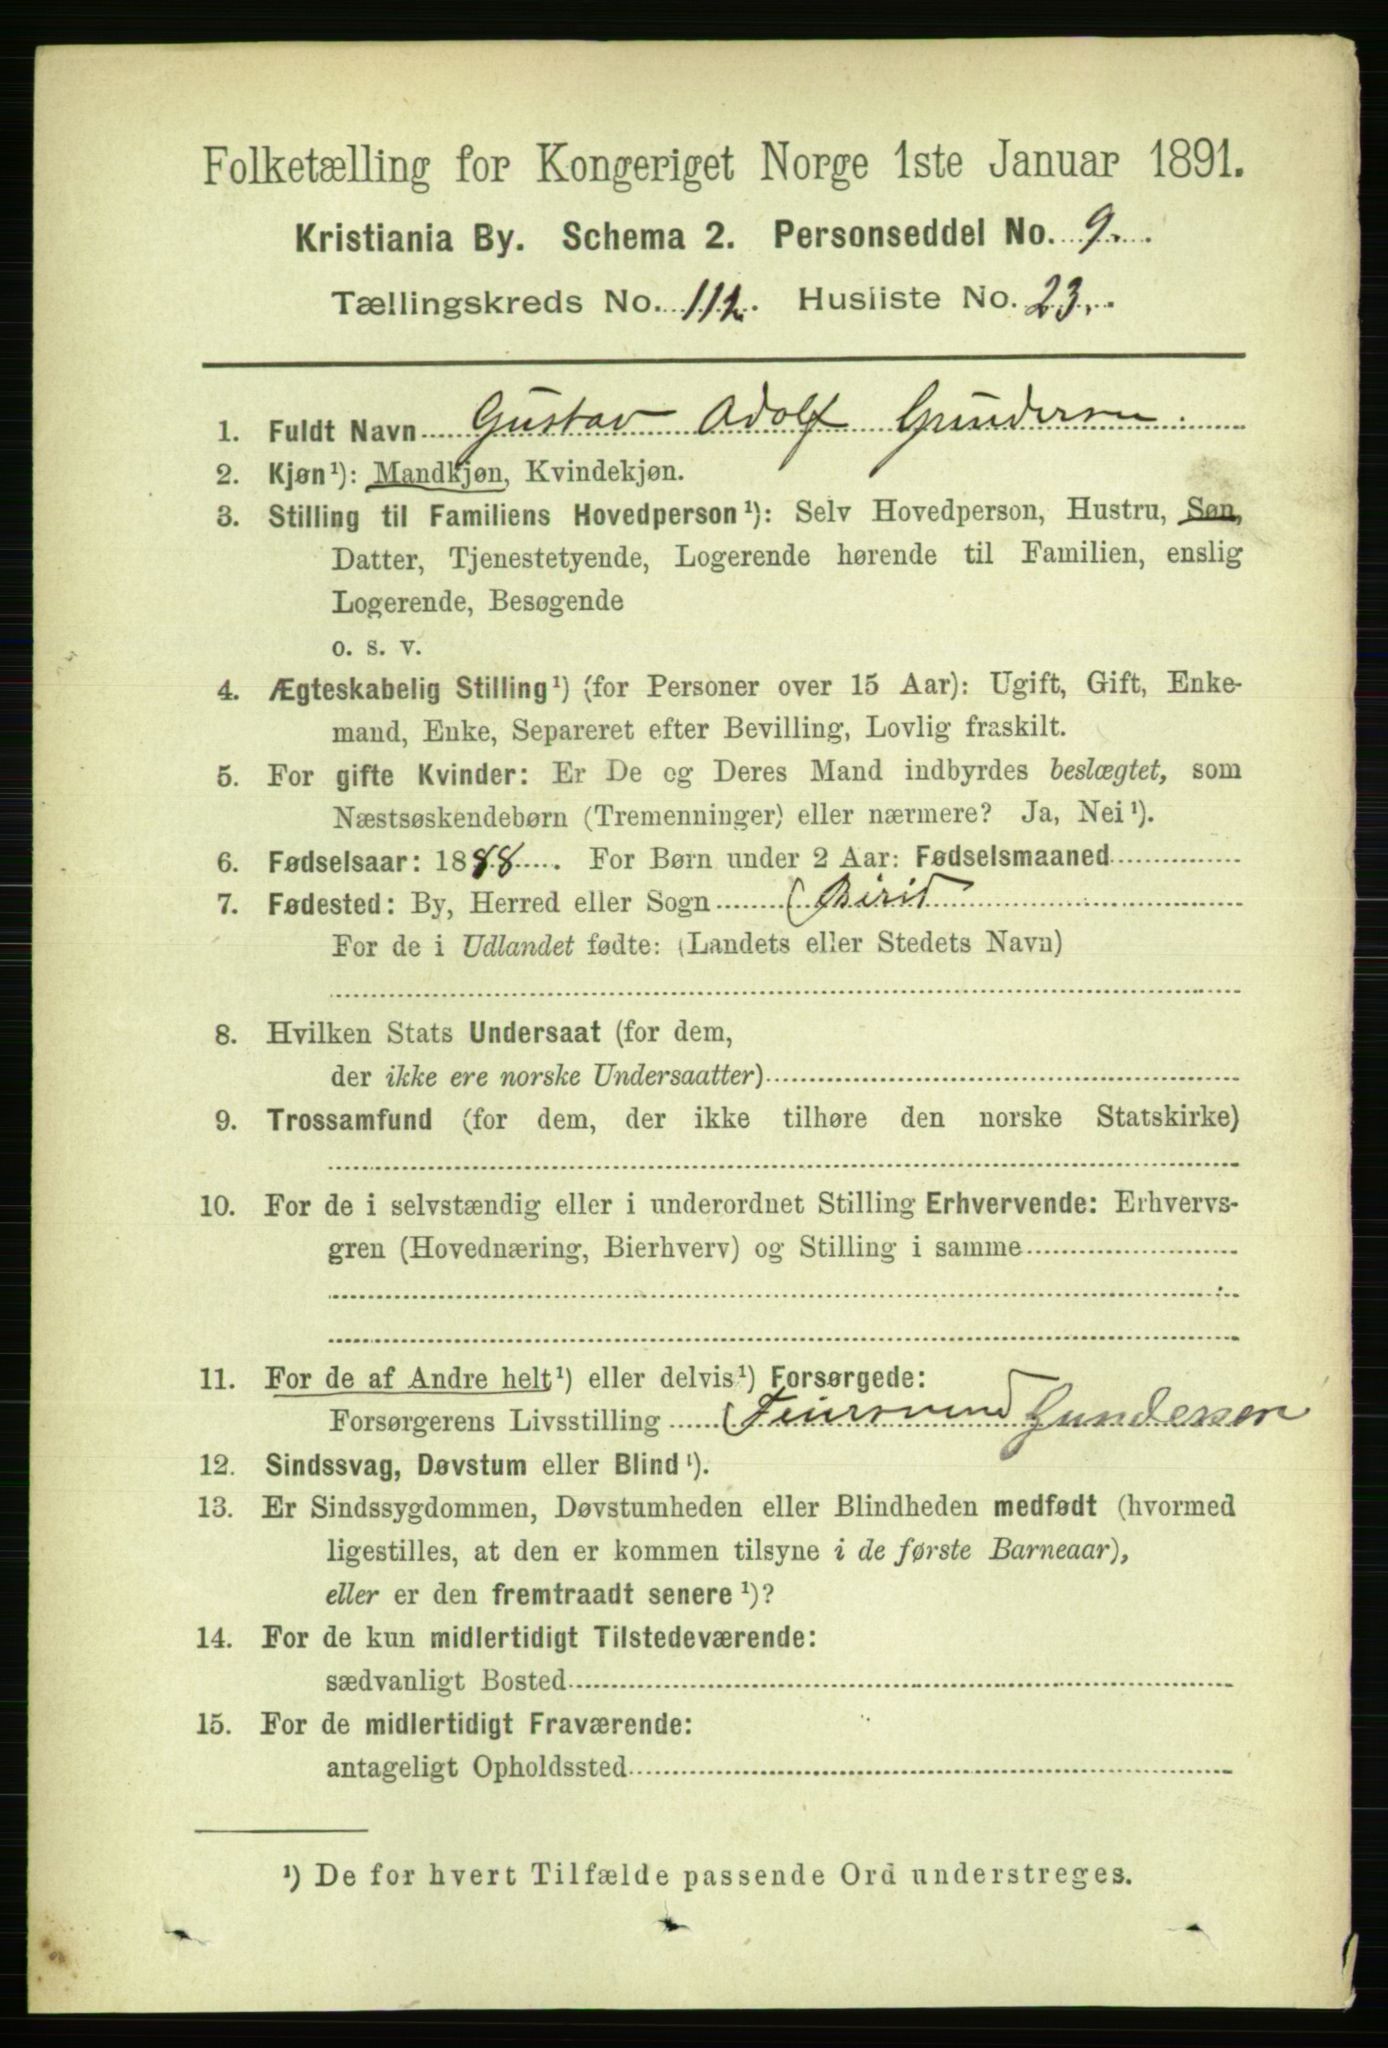 Folketælling for Kongeriget Norge 1ste Januar 1891.
Kristiania By. Schema 2. Personseddel No. 9.
Tællingskreds No. 112. Husliste No. 23.
1. Fuldt Navn Gustav Adolf Gundersen
2. Kjøn¹): Mandkjøn, Kvindekjøn.
3. Stilling til Familiens Hovedperson¹): Selv Hovedperson, Hustru, Søn,
Datter, Tjenestetyende, Logerende hørende til Familien, enslig
Logerende, Besøgende
o. s. v.
4. Ægteskabelig Stilling¹) (for Personer over 15 Aar): Ugift, Gift, Enke-
mand, Enke, Separeret efter Bevilling, Lovlig fraskilt.
5. For gifte Kvinder: Er De og Deres Mand indbyrdes beslægtet, som
Næstsøskendebørn (Tremenninger) eller nærmere? Ja, Nei¹).
6. Fødselsaar: 1888. For Børn under 2 Aar: Fødselsmaaned
7. Fødested: By, Herred eller Sogn Birid
For de i Udlandet fødte: (Landets eller Stedets Navn)
8. Hvilken Stats Undersaat (for dem,
der ikke ere norske Undersaatter)
9. Trossamfund (for dem, der ikke tilhøre den norske Statskirke)
10. For de i selvstændig eller i underordnet Stilling Erhvervende: Erhvervs-
gren (Hovednæring, Bierhverv) og Stilling i samme
11. For de af Andre helt¹) eller delvis¹) Forsørgede:
Forsørgerens Livsstilling Gundersen
12. Sindssvag, Døvstum eller Blind¹).
13. Er Sindssygdommen, Døvstumheden eller Blindheden medfødt (hvormed
ligestilles, at den er kommen tilsyne i de første Barneaar),
eller er den fremtraadt senere¹)?
14. For de kun midlertidigt Tilstedeværende:
sædvanligt Bosted
15. For de midlertidigt Fraværende:
antageligt Opholdssted
¹) De for hvert Tilfælde passende Ord understreges.